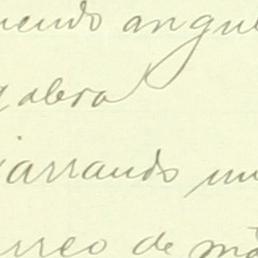 uendo angu
abra
arrando un
rreo de má